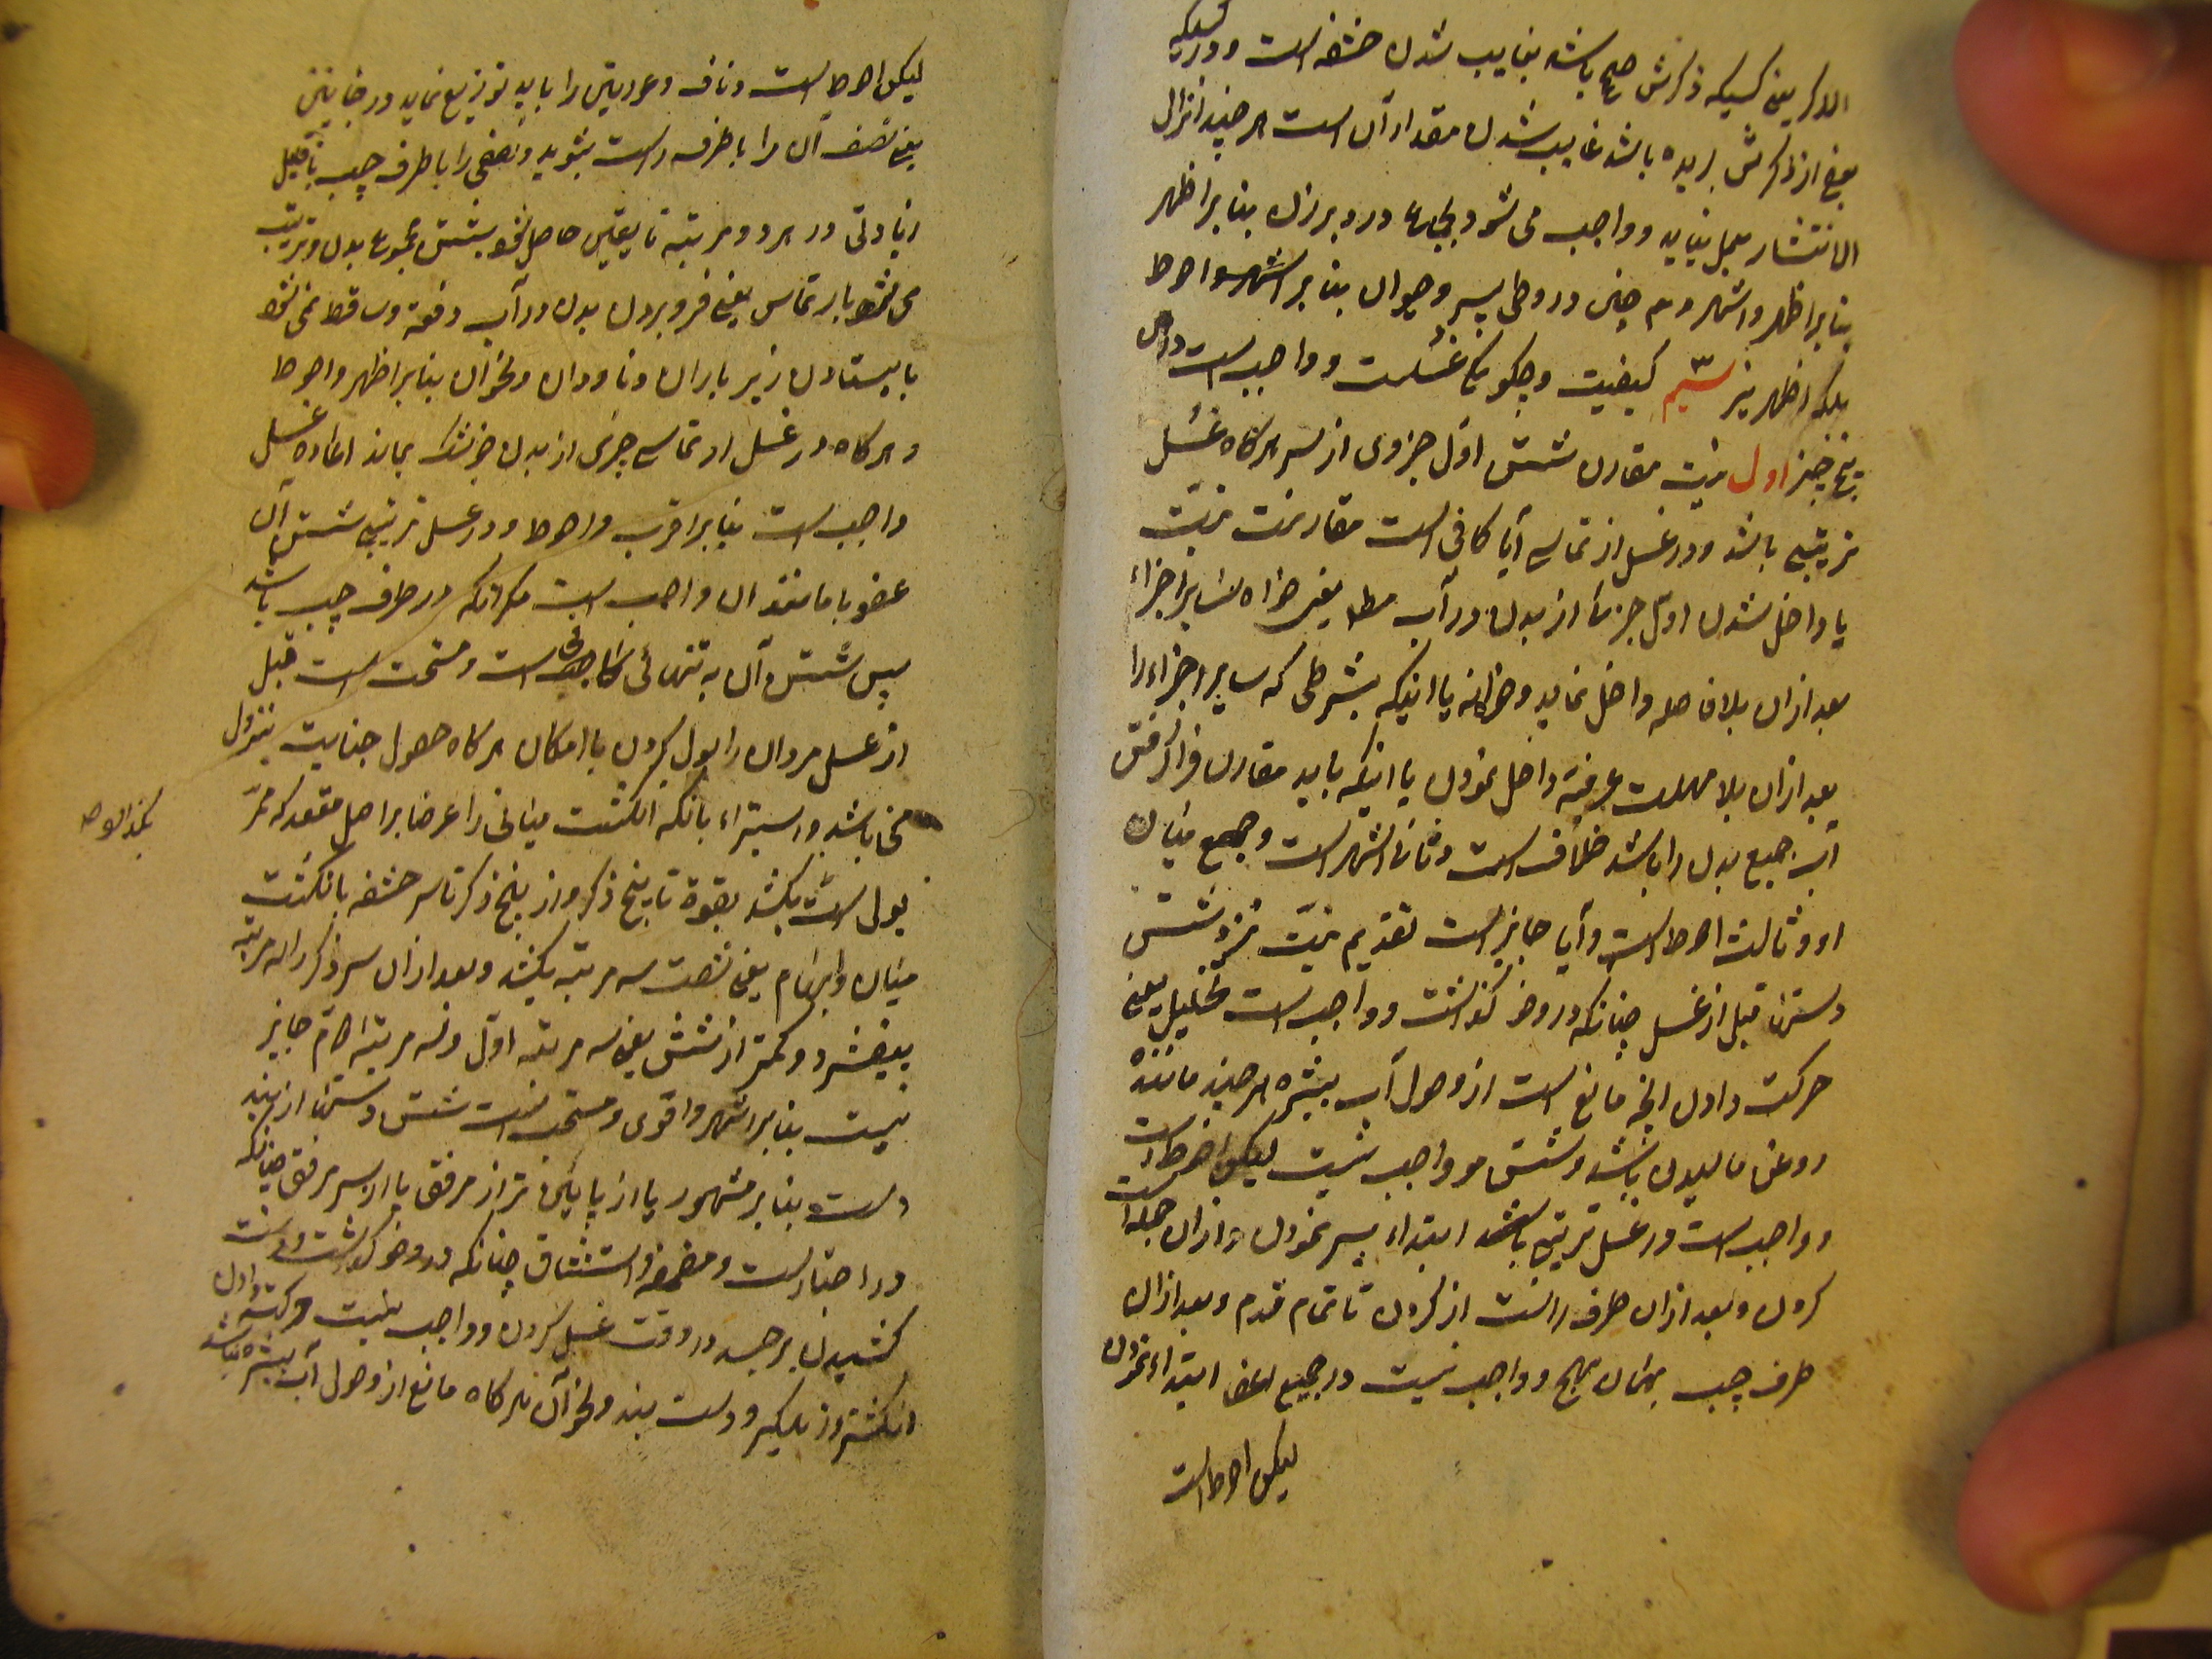 الذکر یعنی کسیکه ذکرش صحیح باشد بغایب شدن حشفه است و در کسیکه
بعض از ذکرش بریده باشد غایب شدن مقدار آن است هر چند انزال
الا انتشار بعمل نیاید و واجب می شود بجماع در دبر زن بنا بر اظهر
بنا بر اظهر و اشهر و هم چنین در وطی پسر و حیوان بنا بر اشهر و احوط
بلکه اظهر نیز سیّم کیفیت و چکونکی غسلست و واجب است در آن
پنج چیز اول نیت مقارن شستن اوّل جزوی از سر هر کاه غسل
ترتیبی باشد و در غسل ارتماسی آیا کافی است مقارنت نیّت
با داخل شدن اوّل جزء از بدن در آب مطلقا یعنی خواه سایر اجزاء
بعد ازان بلا فاصله داخل نماید و خواه نه یا اینکه بشرطی که سایر اجزاء را
بعد ازان بلا مهلت عرفیّه داخل نمودن یا اینکه باید مقارن فرا کرفتن
آب جمیع بدن را باشد خلافست و ثانی اشهر است و جمع میان
او و ثالث احوط است و آیا جایز است تقدیم نیّت نزد شستن
دستها قبل از غسل چنانکه در وضو کذشت و واجب است تخلیل یعنی
حرکت دادن آنچه مانع است از وصول آب ببشره هر چند مانند
روغن مالیدن باشد و شستن مو واجب نیست لیکن احوط است
و واجب است در غسل ترتیبی باشد ابتداء بسر نمودن و ازان جمله است
کردن و بعد ازان طرف راست از کردن تا تمام قدم و بعد ازان
طرف چپ بهمان نهج و واجب نیست در جمیع اعضا ابتداء نمودن
لیکن احوط است
لیکن احوط است و ناف و عورتین را باید توزیع نماید در جانبین
یعنی نصف آن را با طرف راست بشوید و نصفی را با طرف چپ با قلیل
زیادتی در هر دو مرتبه تا یقین حاصل شود بشستن مجموع بدن و ترتیب
می شود بارتماس یعنی فرو بردن بدن در آب دفعة و ساقط نمی شود
بایستادن زیر باران و ناودان و نحو آن بنا بر اظهر و احوط
و هر کاه در غسل ارتماسی جزئی از بدن خشک بماند اعاده غسل
واجب است بنا بر اقرب و احوط و در غسل ترتیبی شستن آن
عضو با ما بعد آن واجب است مکر آنکه در طرف چپ باشد
پس شستن آن به تنهائی کافی است و مستحب است قبل
از غسل مردان را بول کردن با امکان هر کاه حصول جنابت بنزول
منی باشد و استبراء بانکه انکشت میانی را عرضا بر اصل مقعد که ممرّ
بول است بکشد بقوة تا بیخ ذکر و از بیخ ذکر تا سر حشفه بانکشت
میان و ابهام یعنی شصت سه مرتبه بکشد و بعد ازان سر ذکر را سه مرتبه
بیفشرد و کمتر از شش یعنی سه مرتبه اوّل و سه مرتبه دوّم جایز
نیست بنا بر اشهر و اقوی و مستحب است شستن دستها از بند
دست بنا بر مشهور یا از پایین تر از مرفق یا از سر مرفق چنانکه
در اخبار است و مضمضه و استنشاق چنانکه در وضو کذشت و دست
کشیدن بر جسد در وقت غسل کردن و واجب نیست حرکت دادن
انکشتر و زهکیر و دست بند و نحو آن هر کاه مانع از وصول آب ببشره نباشد